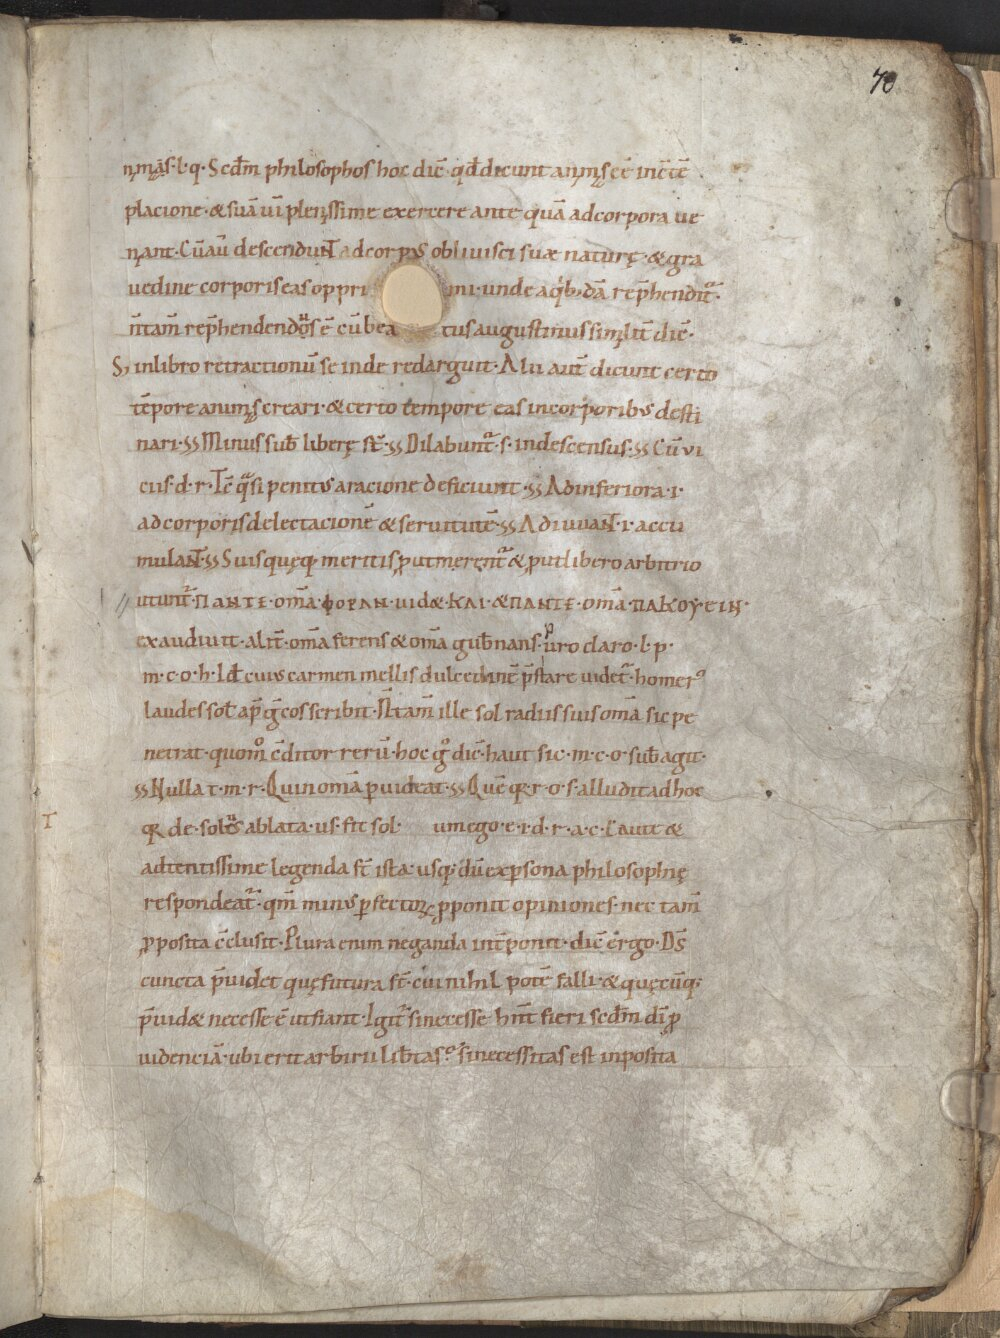 70
nımas·l·q· Scdm philosophos hoc dic̄ qd dicunt animas eē in cūtē
placione· & suā uī plenissime exercere ante quā ad corpora ue
niant· Cū aū descendunt ad corpus obliuisci suæ naturę· & gra
uedine corporis eas oppri mi· unde a qb;dā rep̄henditur·
n̄ tam̄ rep̄hendendus ē cū bea tus augustinus similit̄ dic̄·
S; in libro retractionū se inde redarguit· Alii aut̄ dicunt certo
tēpore animas creari· & certo tempore eas in corporibus desti
nari· Minus sub̄ liberę st̄· Dilabunt̄· s· in descensus· Cū vi
ciis· d· r· Ic̄ quasi penitus a racione deficiunt· Ad inferiora· i·
ad corporis delectacionē & seruitutē· Adiuuant· i· accu
mulant· Suis quęq; meritis p̄ut merentur & p̄ut libero arbitrio
utunt̄· ΠΑΝΤΕ· om̄a· ΦΟΡΑΝ· uidæ· ΚΑΙ· & ΠΑΝΤΕ· om̄a· ΠΑΚΟΥΕΙΝ·
exaudiuit· alit̄· om̄a ferens & om̄a gub̄nans· puro claro· l· p·
m· c· o· h· Id cuius carmen mellis dulcedinē p̄stare uidet̄· homer⁹
laudes sol' ap̄ grecos scribit· N̄ tam̄ ille sol radiis suis om̄a sic pe
netrat· quom̊ c̄ditor rerū· hoc g° dic̄· haut sic· m· c· o· sub̄ agit·
Nulla t· m· r· Qui n om̄a puideat· Quē q; r· o· s· alludit ad hoc
q; de· solus ablata· us· fit sol· um ego· e· i· d· r· a· c· Caute &
adtentissime legenda st̄ ista· usq; dū ex psona philosophię
respondeat̄· qm̄ minus pfectorum p̄ponit opiniones· nec tam̄
p̄posita c̄clusit· Plura enim neganda int̄ponit· dic̄ ergo· Ds̄
cuncta p̄uidet quę futura st̄· cui nihil potē falli· & quęcūq;
p̄uidæ necesse ē ut fiant· Igit̄ si necesse hn̄t fieri scdm dī p̄
uidenciā· ubi erit arbirii lib̄tas? si necessitas est inposita